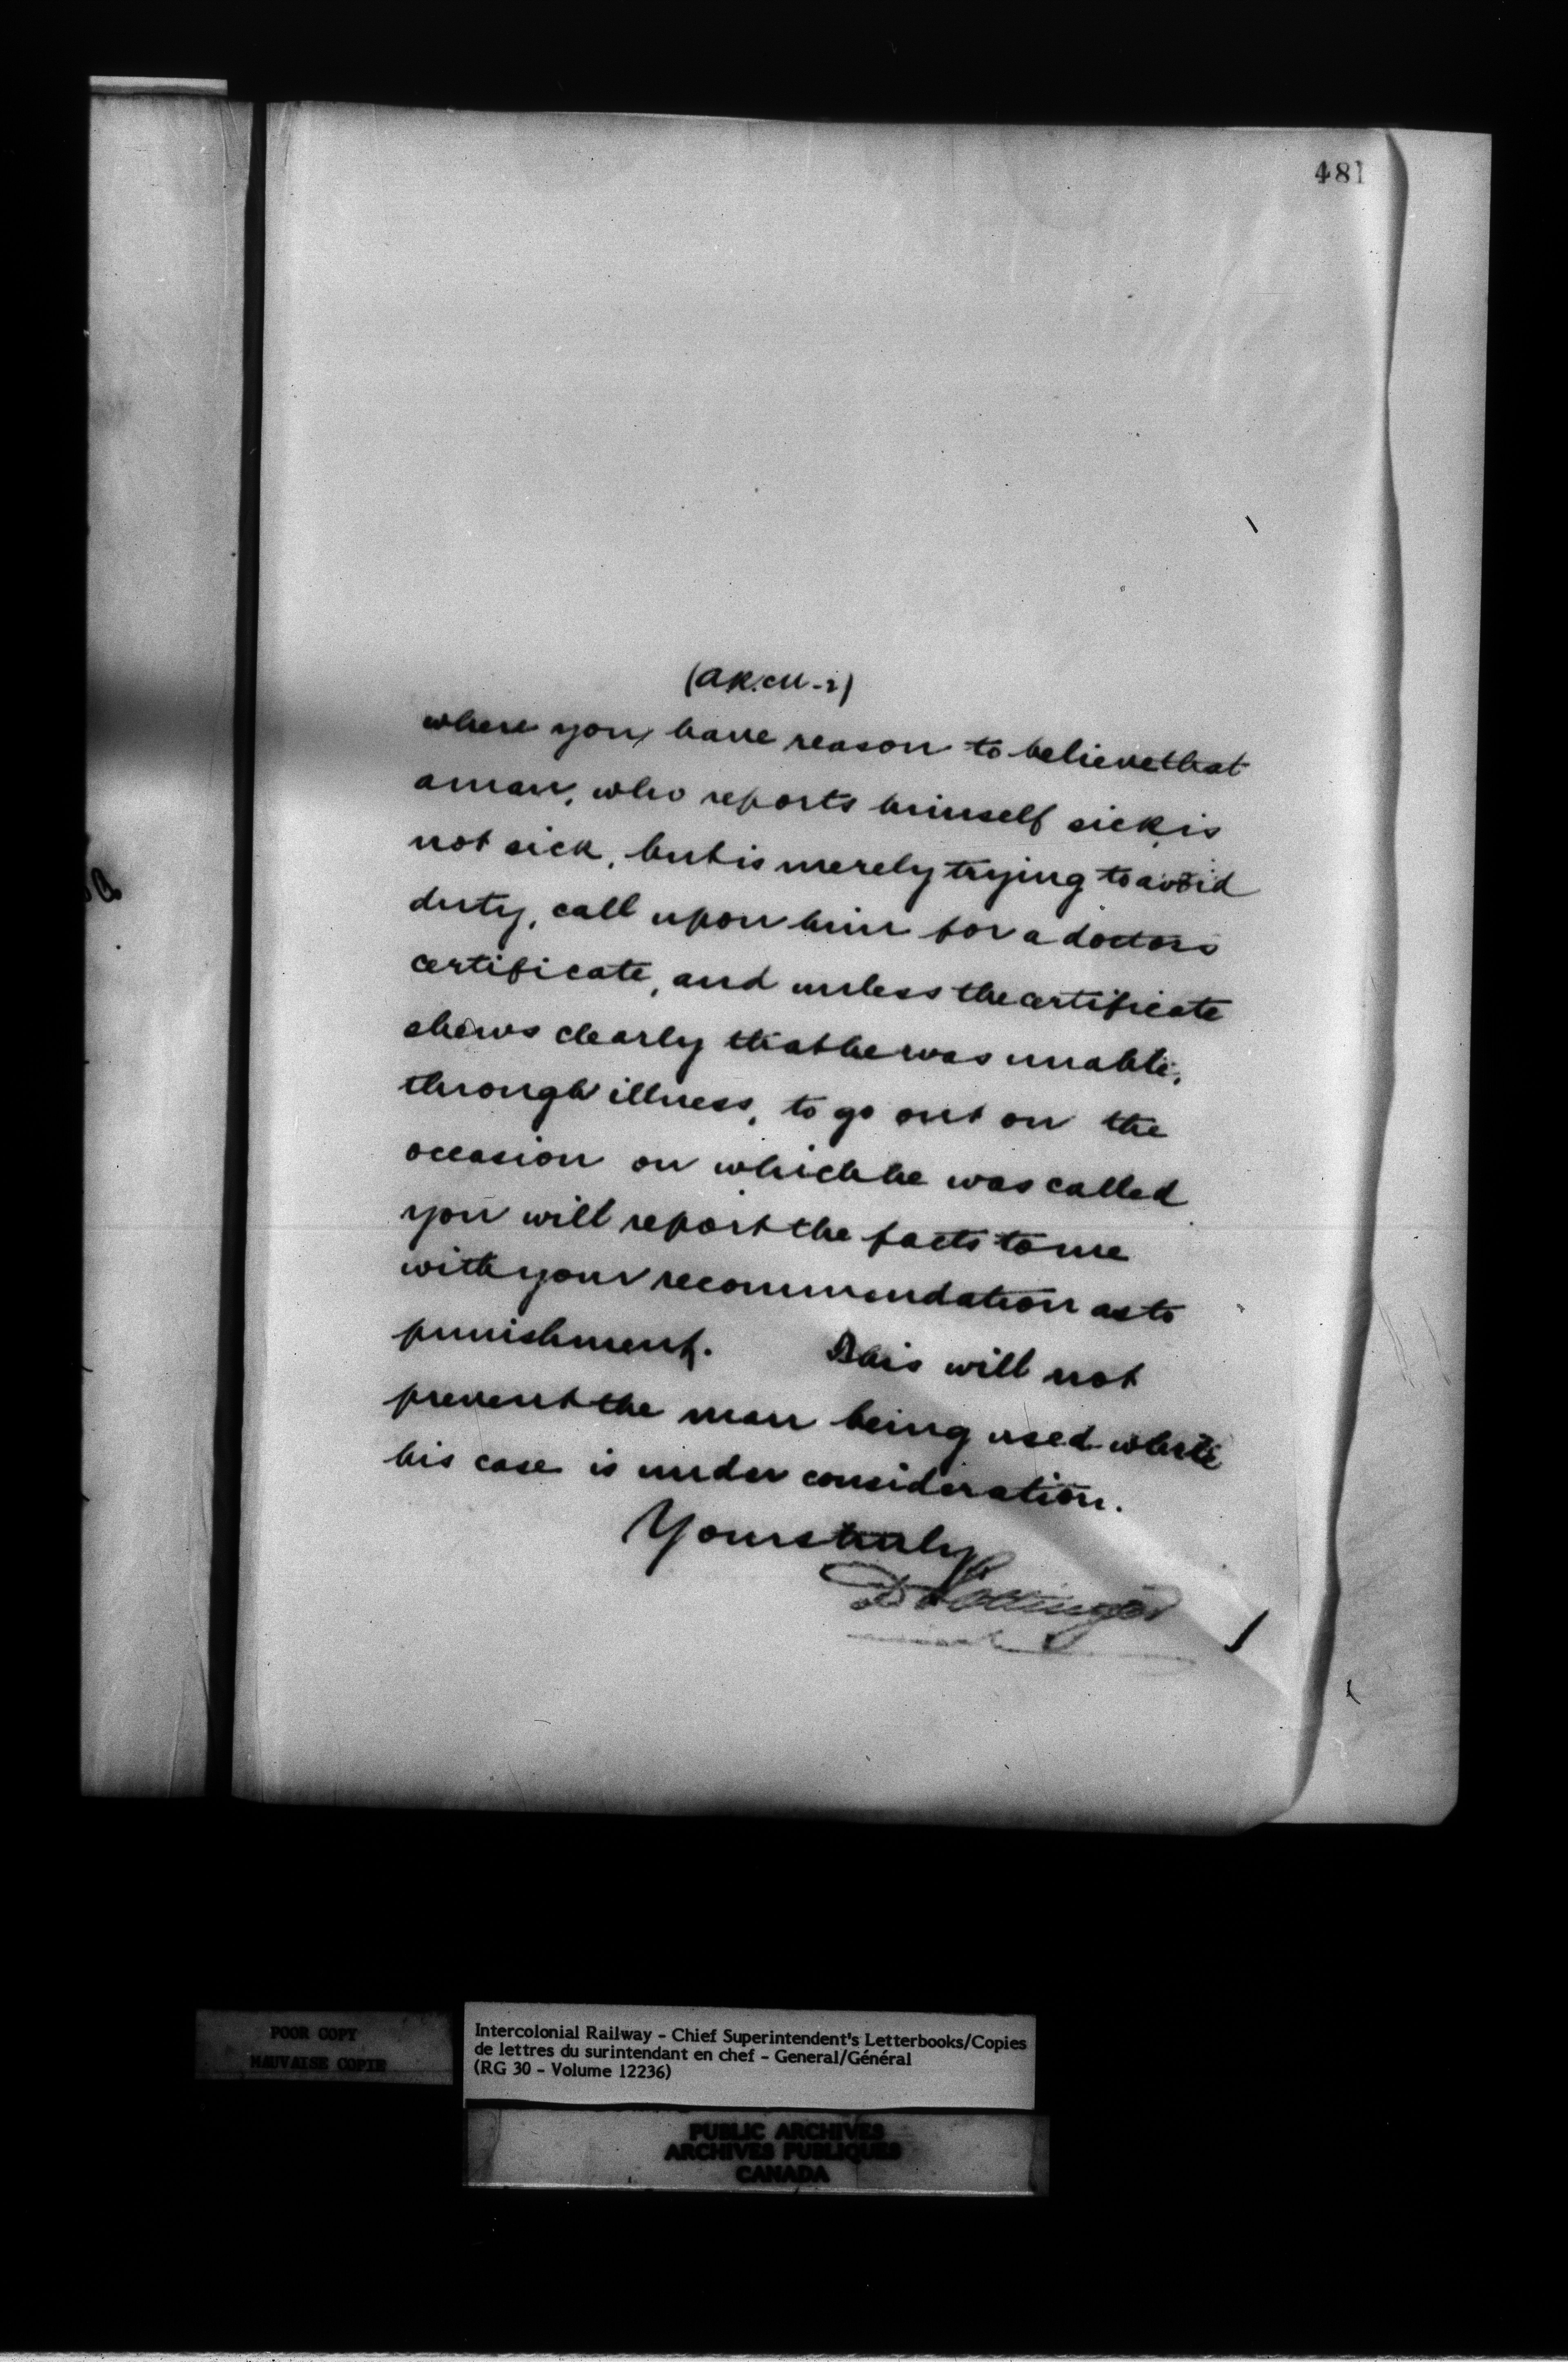 481
(A.R.M. - 2)
where you have reason to believe that
a man, who reports himself sick, is
not sick, but is merely trying to avoid
duty, call upon him for a doctors
certificate, and unless the certificate
shews clearly that he was unable,
through illness, to go out on the
occasion on which he was called
you will report the facts to me
with your recommendation as to
punishment. This will not
prevent the man being used while
his case is under consideration.
Yours truly
D Pottinger
POOR COPY
MAUVAISE COPIE
Intercolonial Railway - Chief Superintendent's Letterbooks/Copies
de lettres du surintendant en chef - General/Général
(RG 30 - Volume 12236)
PUBLIC ARCHIVES
ARCHIVES PUBLIQUES
CANADA